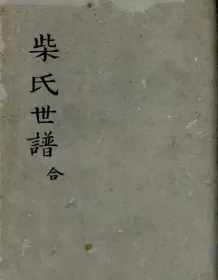 柴氏世譜
合